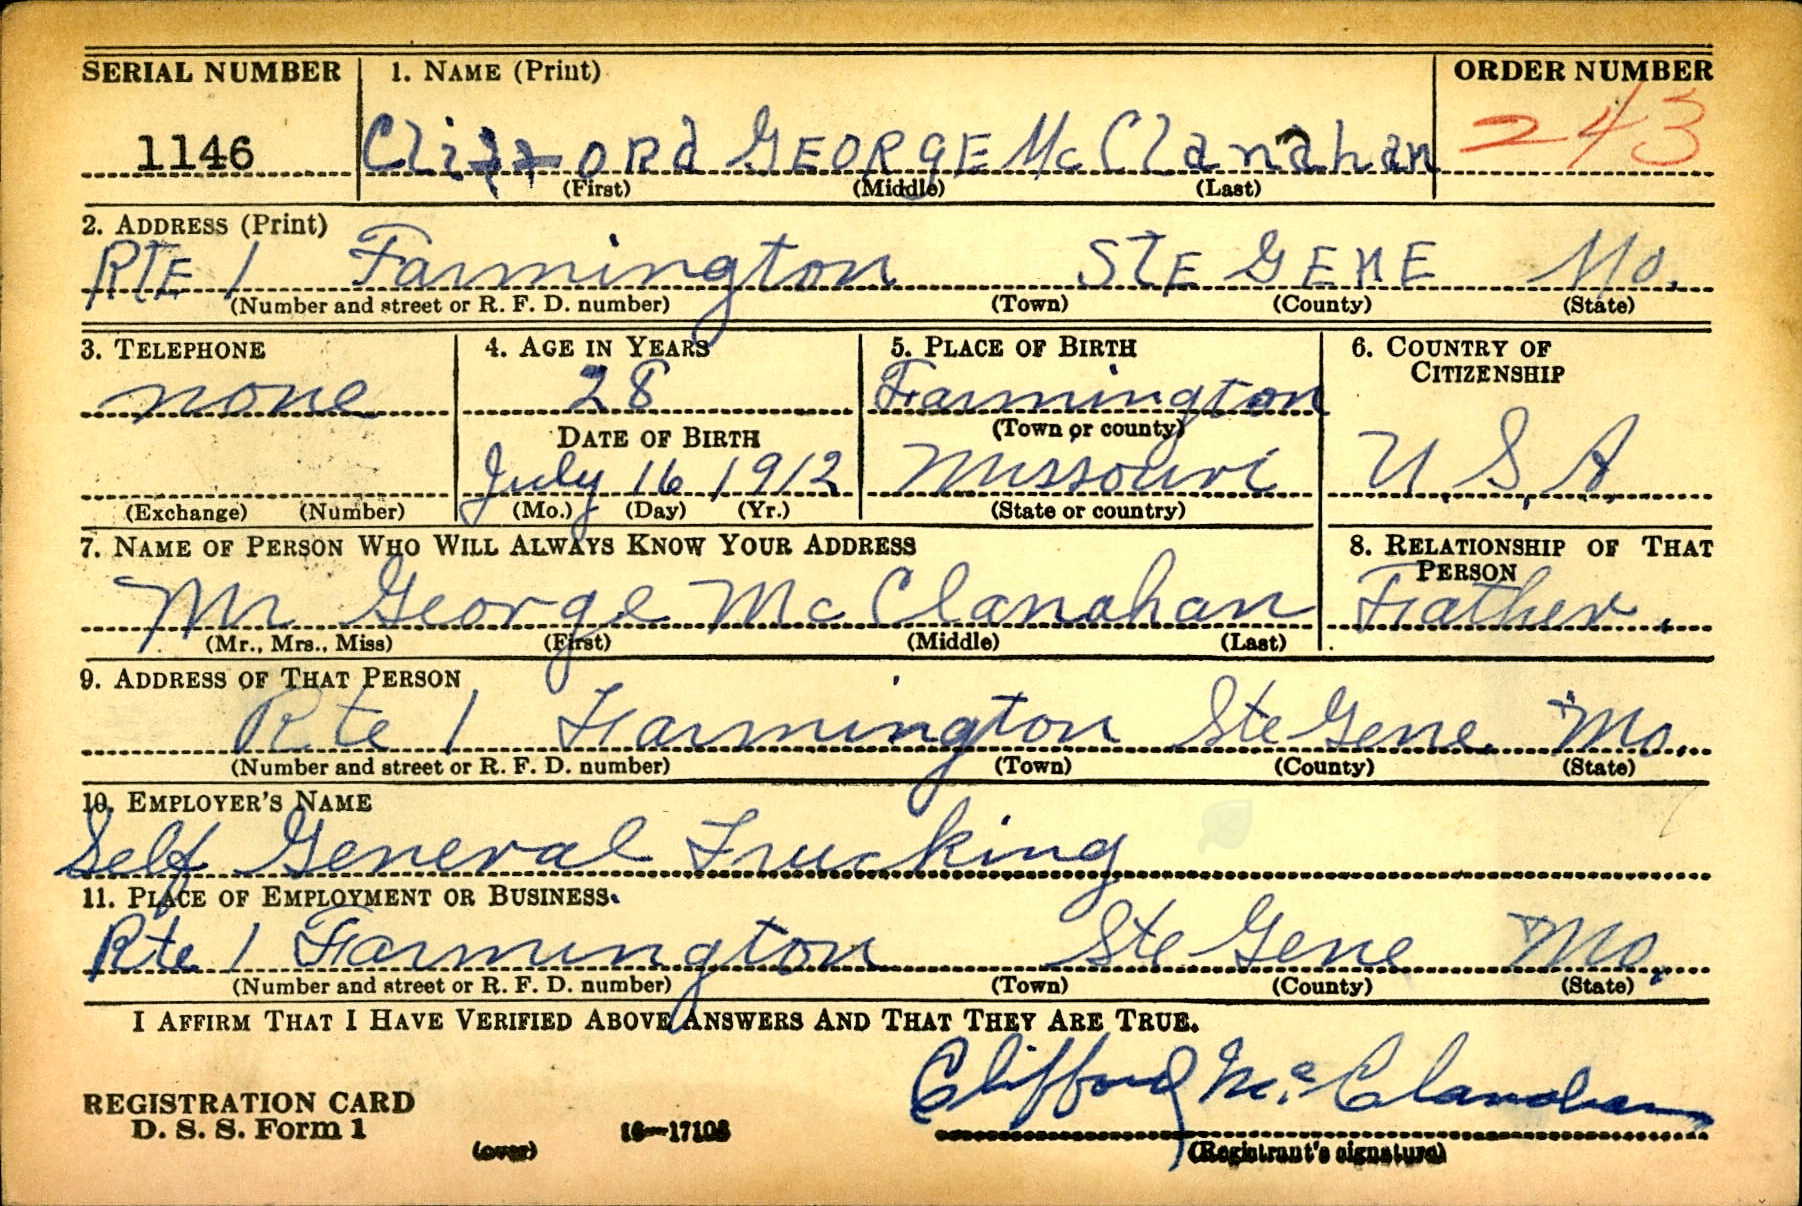 SERIAL NUMBER 1. NAME (Print) ORDER NUMBER
1146 Clifford GEORGE McClanahan 243
(First) (Middle) (Last)
2. ADDRESS (Print)
RTE 1 Farmington STE GENE Mo.
(Number and street or R. F. D. number) (Town) (County) (State)
3. TELEPHONE 4. AGE IN YEARS 5. PLACE OF BIRTH 6. COUNTRY OF CITIZENSHIP
none 28 Farmington
DATE OF BIRTH (Town or county)
July 16 1912 Missouri U.S.A
(Exchange) (Number) (Mo.) (Day) (Yr.) (State or country)
7. NAME OF PERSON WHO WILL ALWAYS KNOW YOUR ADDRESS 8. RELATIONSHIP OF THAT PERSON
Mr George McClanahan Father.
(Mr., Mrs., Miss) (First) (Middle) (Last)
9. ADDRESS OF THAT PERSON
Rte 1 Farmington Ste Gene. Mo.
(Number and street or R. F. D. number) (Town) (County) (State)
10. EMPLOYER'S NAME
Self General Trucking
11. PLACE OF EMPLOYMENT OR BUSINESS
Rte 1 Farmington Ste Gene Mo.
(Number and street or R. F. D. number) (Town) (County) (State)
I AFFIRM THAT I HAVE VERIFIED ABOVE ANSWERS AND THAT THEY ARE TRUE.
Clifford McClanahan
REGISTRATION CARD
D. S. S. Form 1 (over) 16—17108 (Registrant's signature)